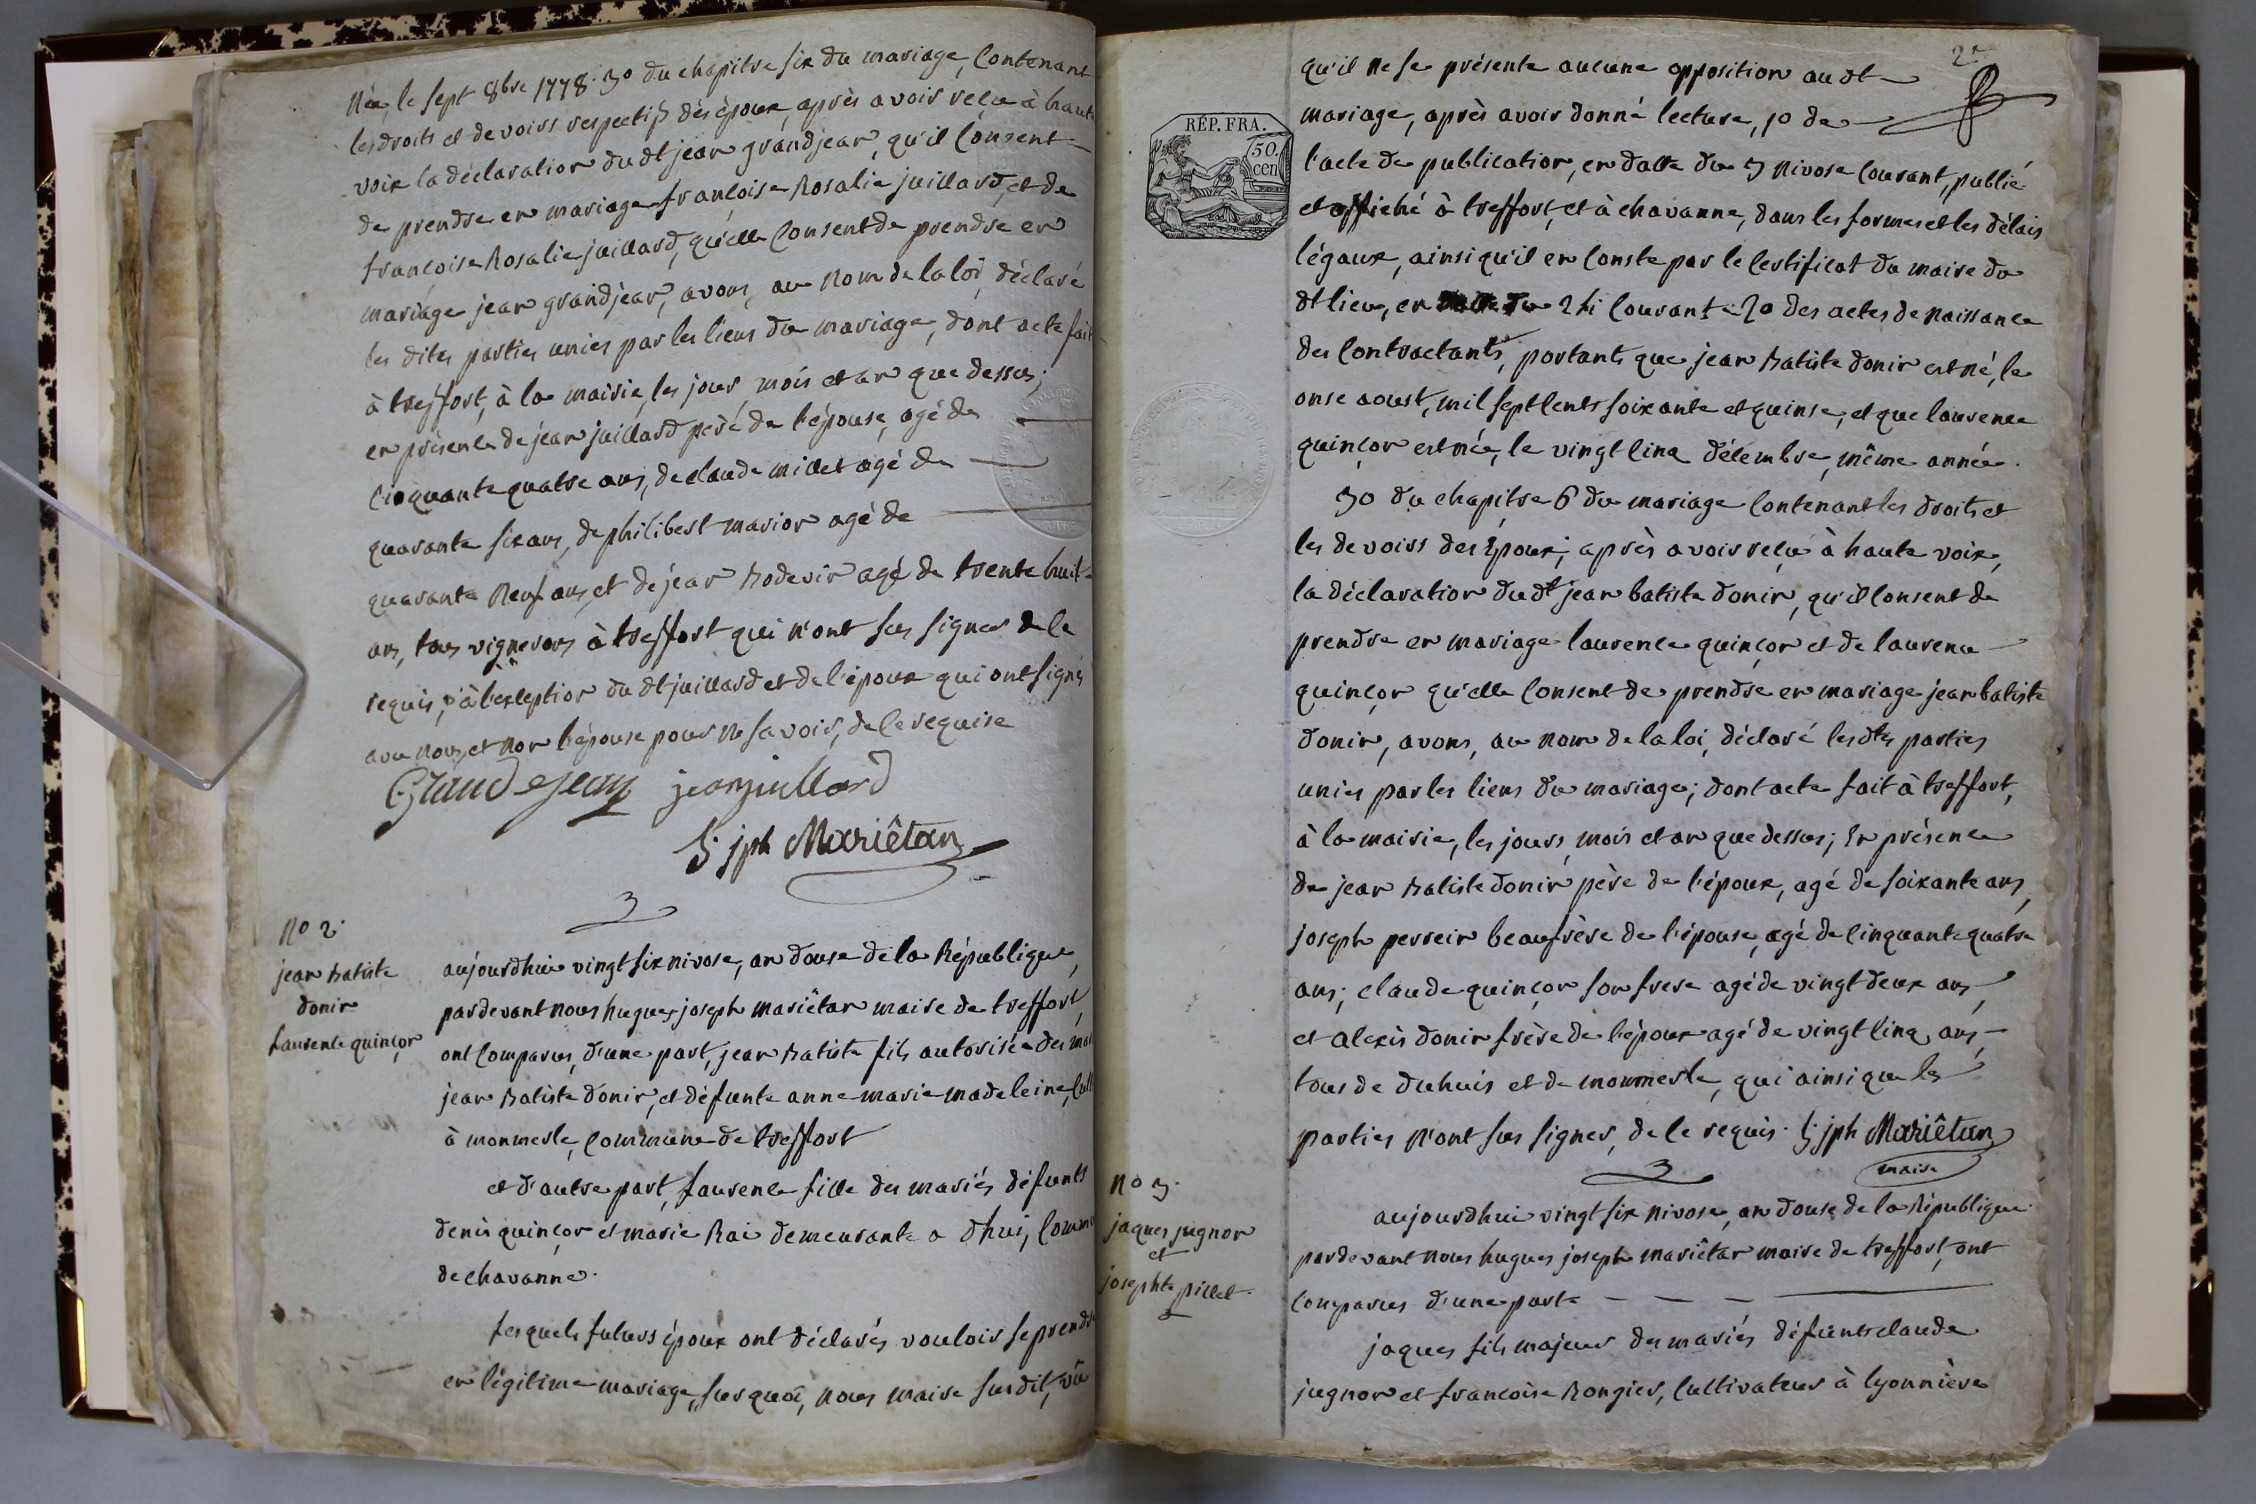 née, le sept 8bre 1778. 3o du chapitre six du mariage, Contenant
les droits et devoirs respectifs dés époux, après avoir reçu à haute
voix la déclaration du dt jean grandjean, qu'il Consent
de prendre en mariage françoise Rosalie juillard, et de
françoise Rosalie juillard, qu'elle Consent de prendre en
mariage jean grandjean, avons, au nom de la loi, déclaré
les dites parties unies par les liens du mariage, dont acte fait
à treffort, à la mairie, les jour, mois et an que dessus;
en présence de jean juillard père de l'épouse, agé de
Cinquante quatre ans, de claude millet agé de
quarante six ans, de philibert marion agé de
quarante neuf ans, et de jean Bodevin agé de trente huit
ans, tous vignerons à treffort qui n'ont sus signer de le
requis, à l'exception du dt juillard et de l'époux qui ont signés
avec nous, et non l'épouse pour ne savoir, de ce requise
Grand Jean jean juillard
h. jph Mariêtan
No 2.
jean Batiste
donin
Laurence quinçon
aujourdhui vingt six nivose, an douse de la République,
pardevant nous hugues joseph mariêtan maire de treffort,
ont Comparus, d'une part, jean Batiste fils autorisée des mariés
jean Batiste donin, et défunte anne marie madeleine,
à monmerle, Commune de treffort
et d'autre part, Laurence fille des mariés défunts
denis quinçon et marie Rai demeurante a dhui,
de chavanne.
Lesquels futurs époux ont déclarés vouloir se prendre
en légitime mariage, sur quoi, nous maire susdit, vû
2e
qu'il ne se présente aucune opposition au dt
mariage, après avoir donné lecture, 1o de
l'acte de publication, en datte du 3 nivose Courant, publié
et affiché à treffort, et à chavanne, dans les formes et les délais
légaux, ainsi qu'il en Conste par le Certificat du maire du
dt lieu, en datte du 24 Courant. 2o des actes de naissance
des Contractants, portants que jean Batiste donin est né, le
onse aoust, mil sept Cents soixante et quinse, et que laurence
quinçon est née, le vingt Cinq décembre, même année.
3o du chapitre 6 du mariage Contenant les droits et
les devoirs des Epoux; après avoir reçu à haute voix,
la déclaration du dt jean batiste donin, qu'il Consent de
prendre en mariage laurence quinçon et de laurence
quinçon qu'elle Consent de prendre en mariage jean batiste
donin, avons, au nom de la loi, déclaré les dtes parties
unies par les liens du mariage; dont acte fait à treffort,
à la mairie, les jours, mois et an que dessus; En présence
de jean Batiste donin père de l'époux, agé de soixante ans,
joseph perrein beaufrère de l'épouse, agé de Cinquante quatre
ans; claude quinçon son frere agé de vingt deux ans,
et alexis donin frère de l'époux agé de vingt Cinq ans,
tous de duhuis et de monmerle, qui ainsi que les
parties n'ont sus signer, de ce requis. h. jph Mariêtan
maire
RÉP. FRA.
50.
cen
No 3.
jaques jugnon
et
josephte pillet.
aujourdhui vingt six nivose, an douse de la République
pardevant nous hugues joseph mariêtan maire de treffort, ont
Comparus d'une part
jaques fils majeur des mariés défunts claude
jugnon et francoise Rongier, Cultivateur à lyonnière